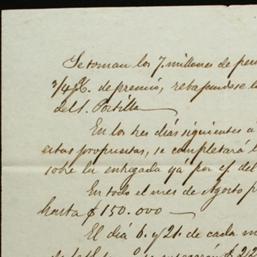 Se toman los 7. millones de pes
3/4 %. de premio, rebajandose l
del S. Portilla
En los tres dias siguientes a
estas propuestas, se completará l
sobre lo entregado ya por ef. del
En todo el mes de Agosto p
hasta $ 150.000 —
El dia 6 y 21 de cada m